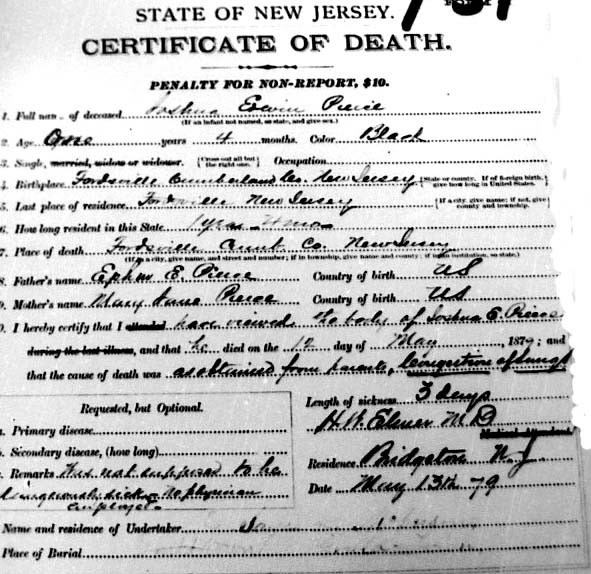 STATE OF NEW JERSEY.
CERTIFICATE OF DEATH.
PENALTY FOR NON-REPORT, $10.
1. Full name of deceased Joshua Edwin Pierce
(If an infant not named, so state, and give sex.)
2. Age One years 4 months. Color Black
3. Single, married, widow or widower. (Cross out all but the right one.) Occupation
4. Birthplace Fordsville Cumberland Co. New Jersey (State or county. If of foreign birth, give how long in United States.)
5. Last place of residence Fordsville New Jersey (If a city, give name; if not, give county and township.)
6. How long resident in this State 1 yrs 4 mo
7. Place of death Fordsville Cumb Co. New Jersey
(If a city, give name, street and number; if in township, give name and county; if in institution, so state.)
8. Father's name E. Pierce Country of birth US
9. Mother's name Mary Pierce Country of birth US
I hereby certify that I attended have viewed the body of Joshua E Pierce
during the last illness, and that he died on the 12 day of May, 1879; and
that the cause of death was as obtained from parents, Congestion of Lungs
Requested, but Optional. Length of sickness 3 days
Primary disease H. W. Elmer M D
Medical Attendant
Secondary disease, (how long) Residence Bridgeton N J
Remarks Was not supposed to be
dangerously sick no physician Date May 13th 79
employed
Name and residence of Undertaker
Place of Burial